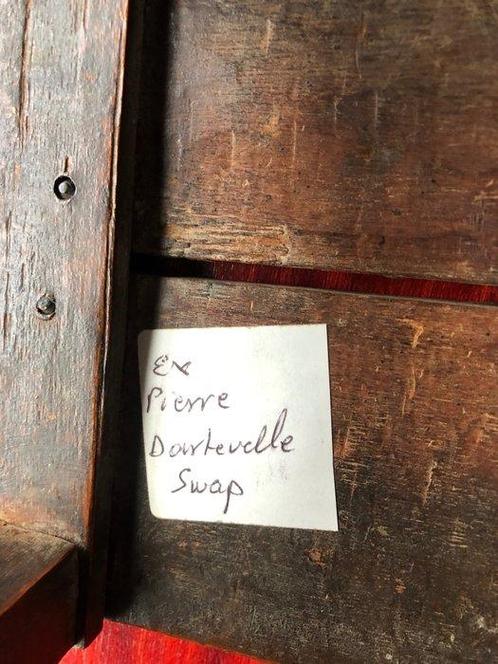 Ex
Pierre
Dartevelle
Swap